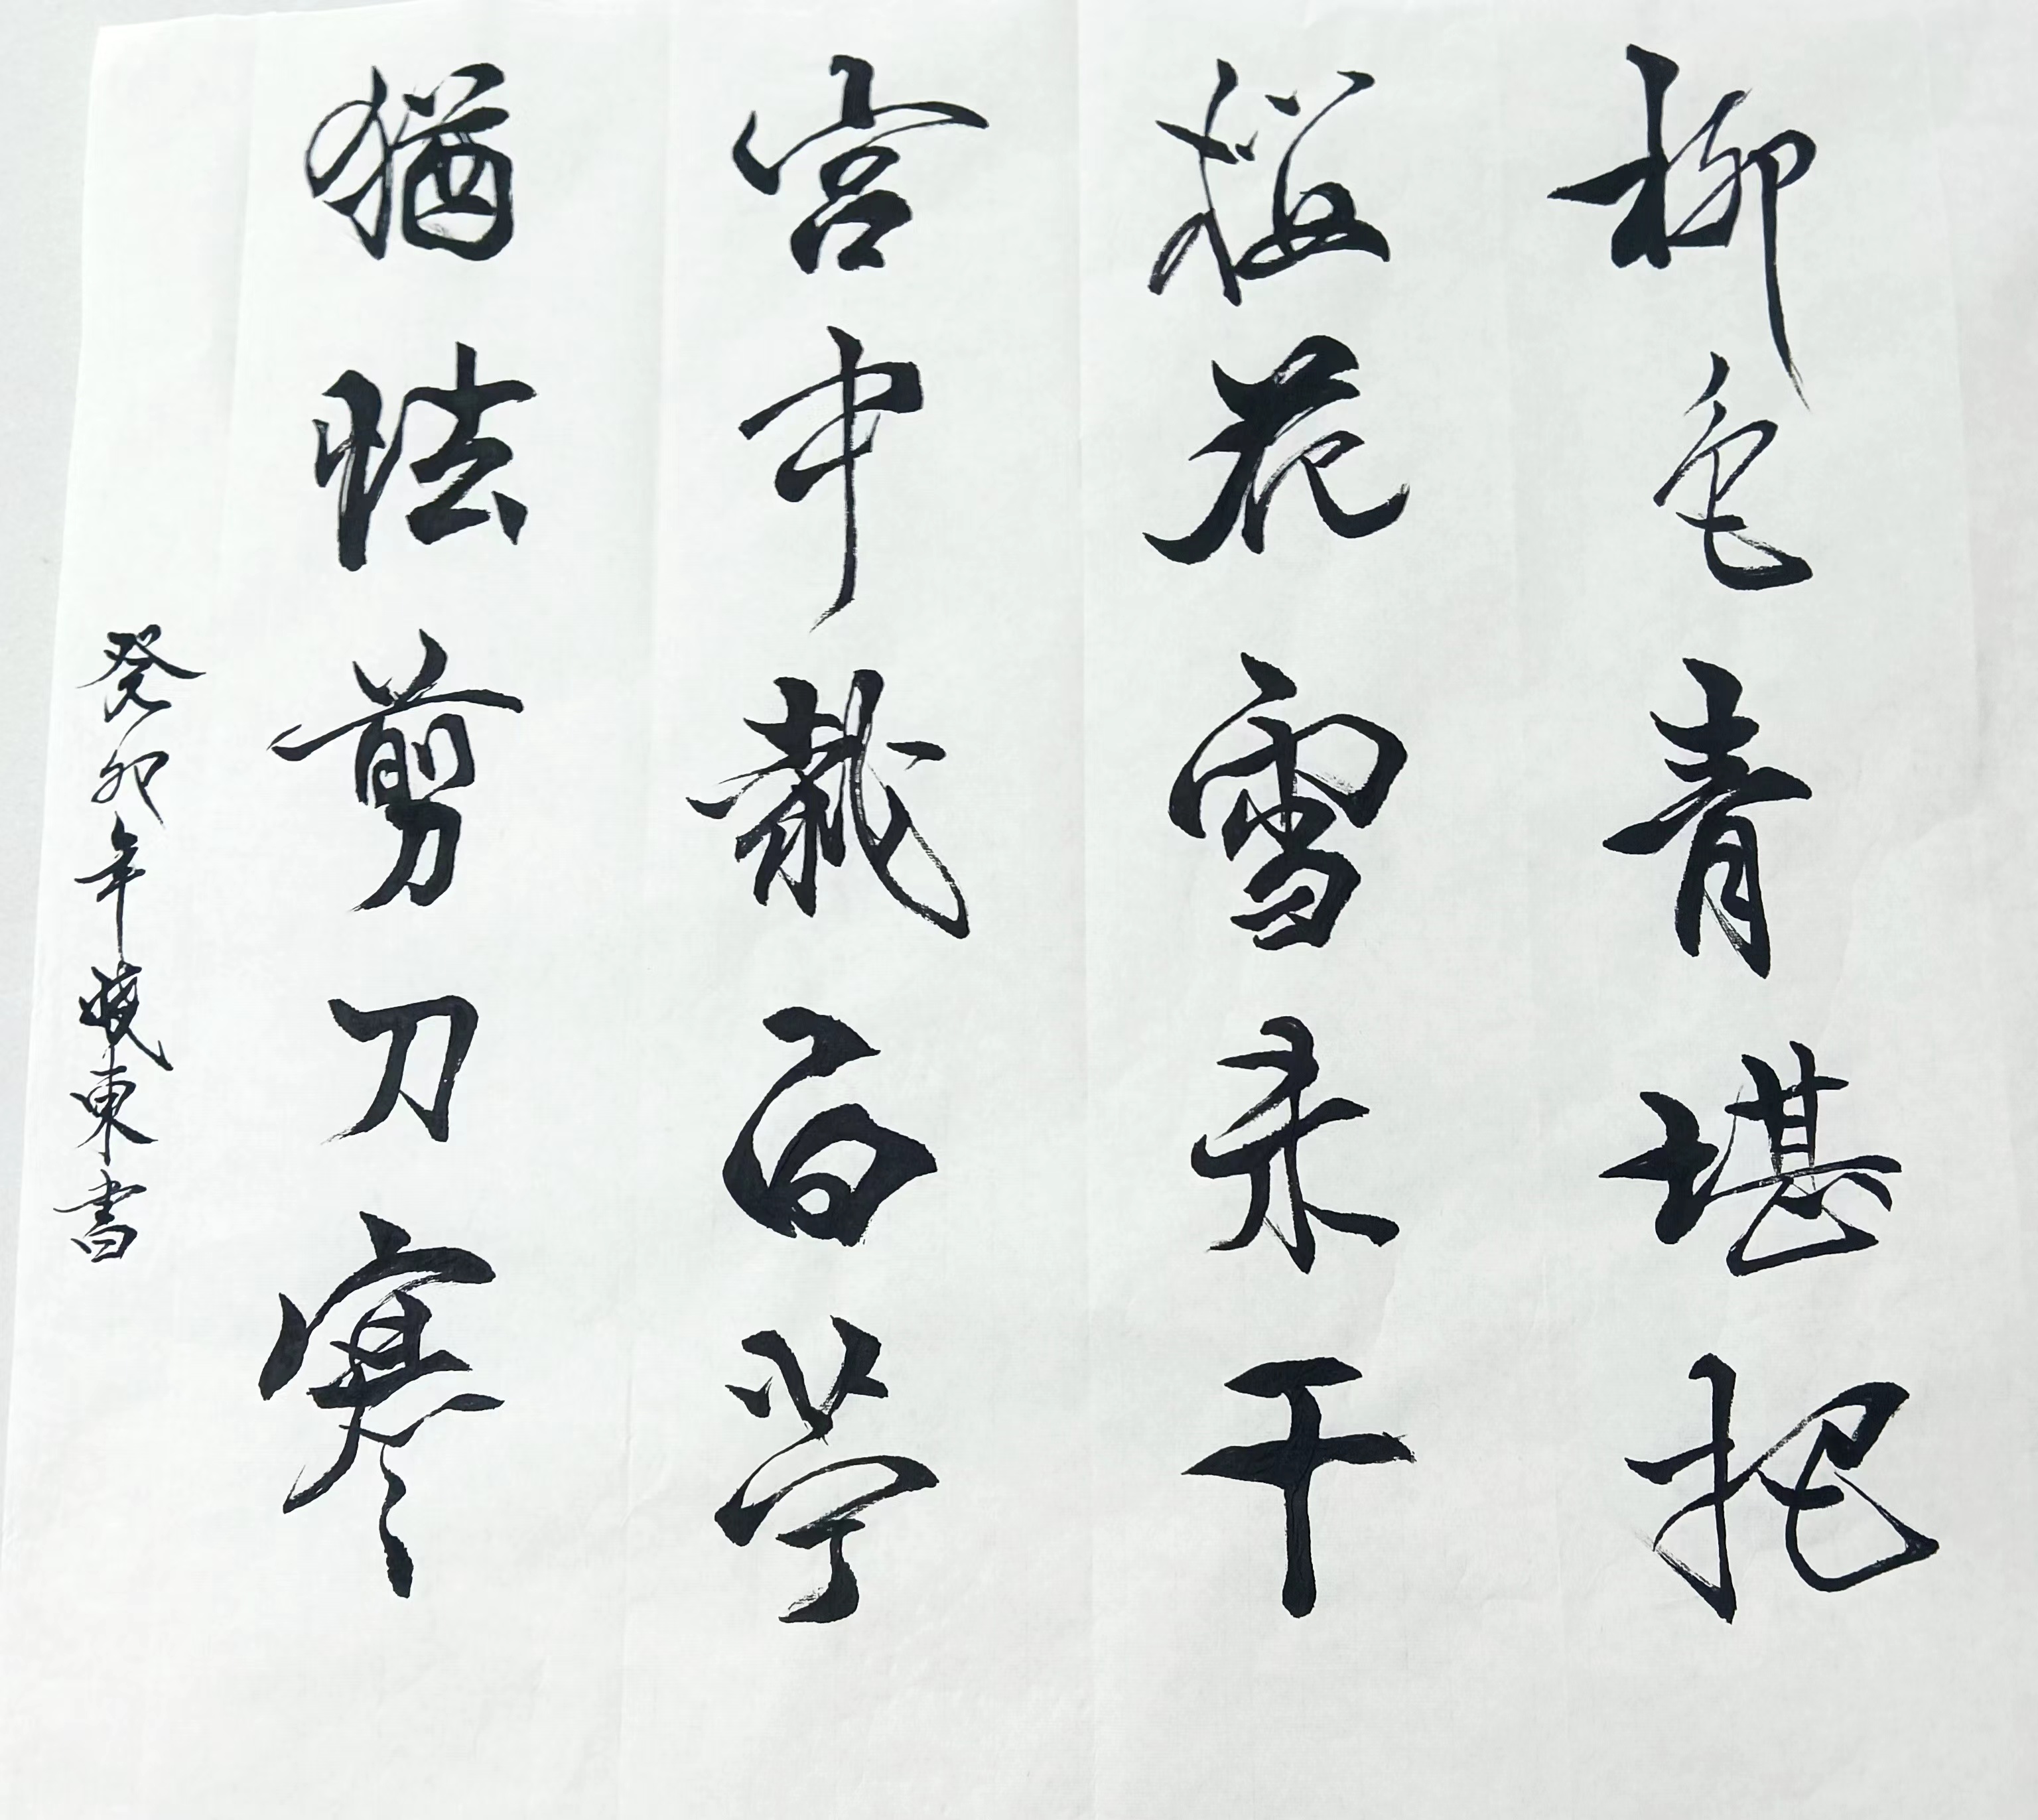 柳色青堪把
櫻花雪未干
宮中裁白苧
猶怯剪刀寒
癸卯年曉東書